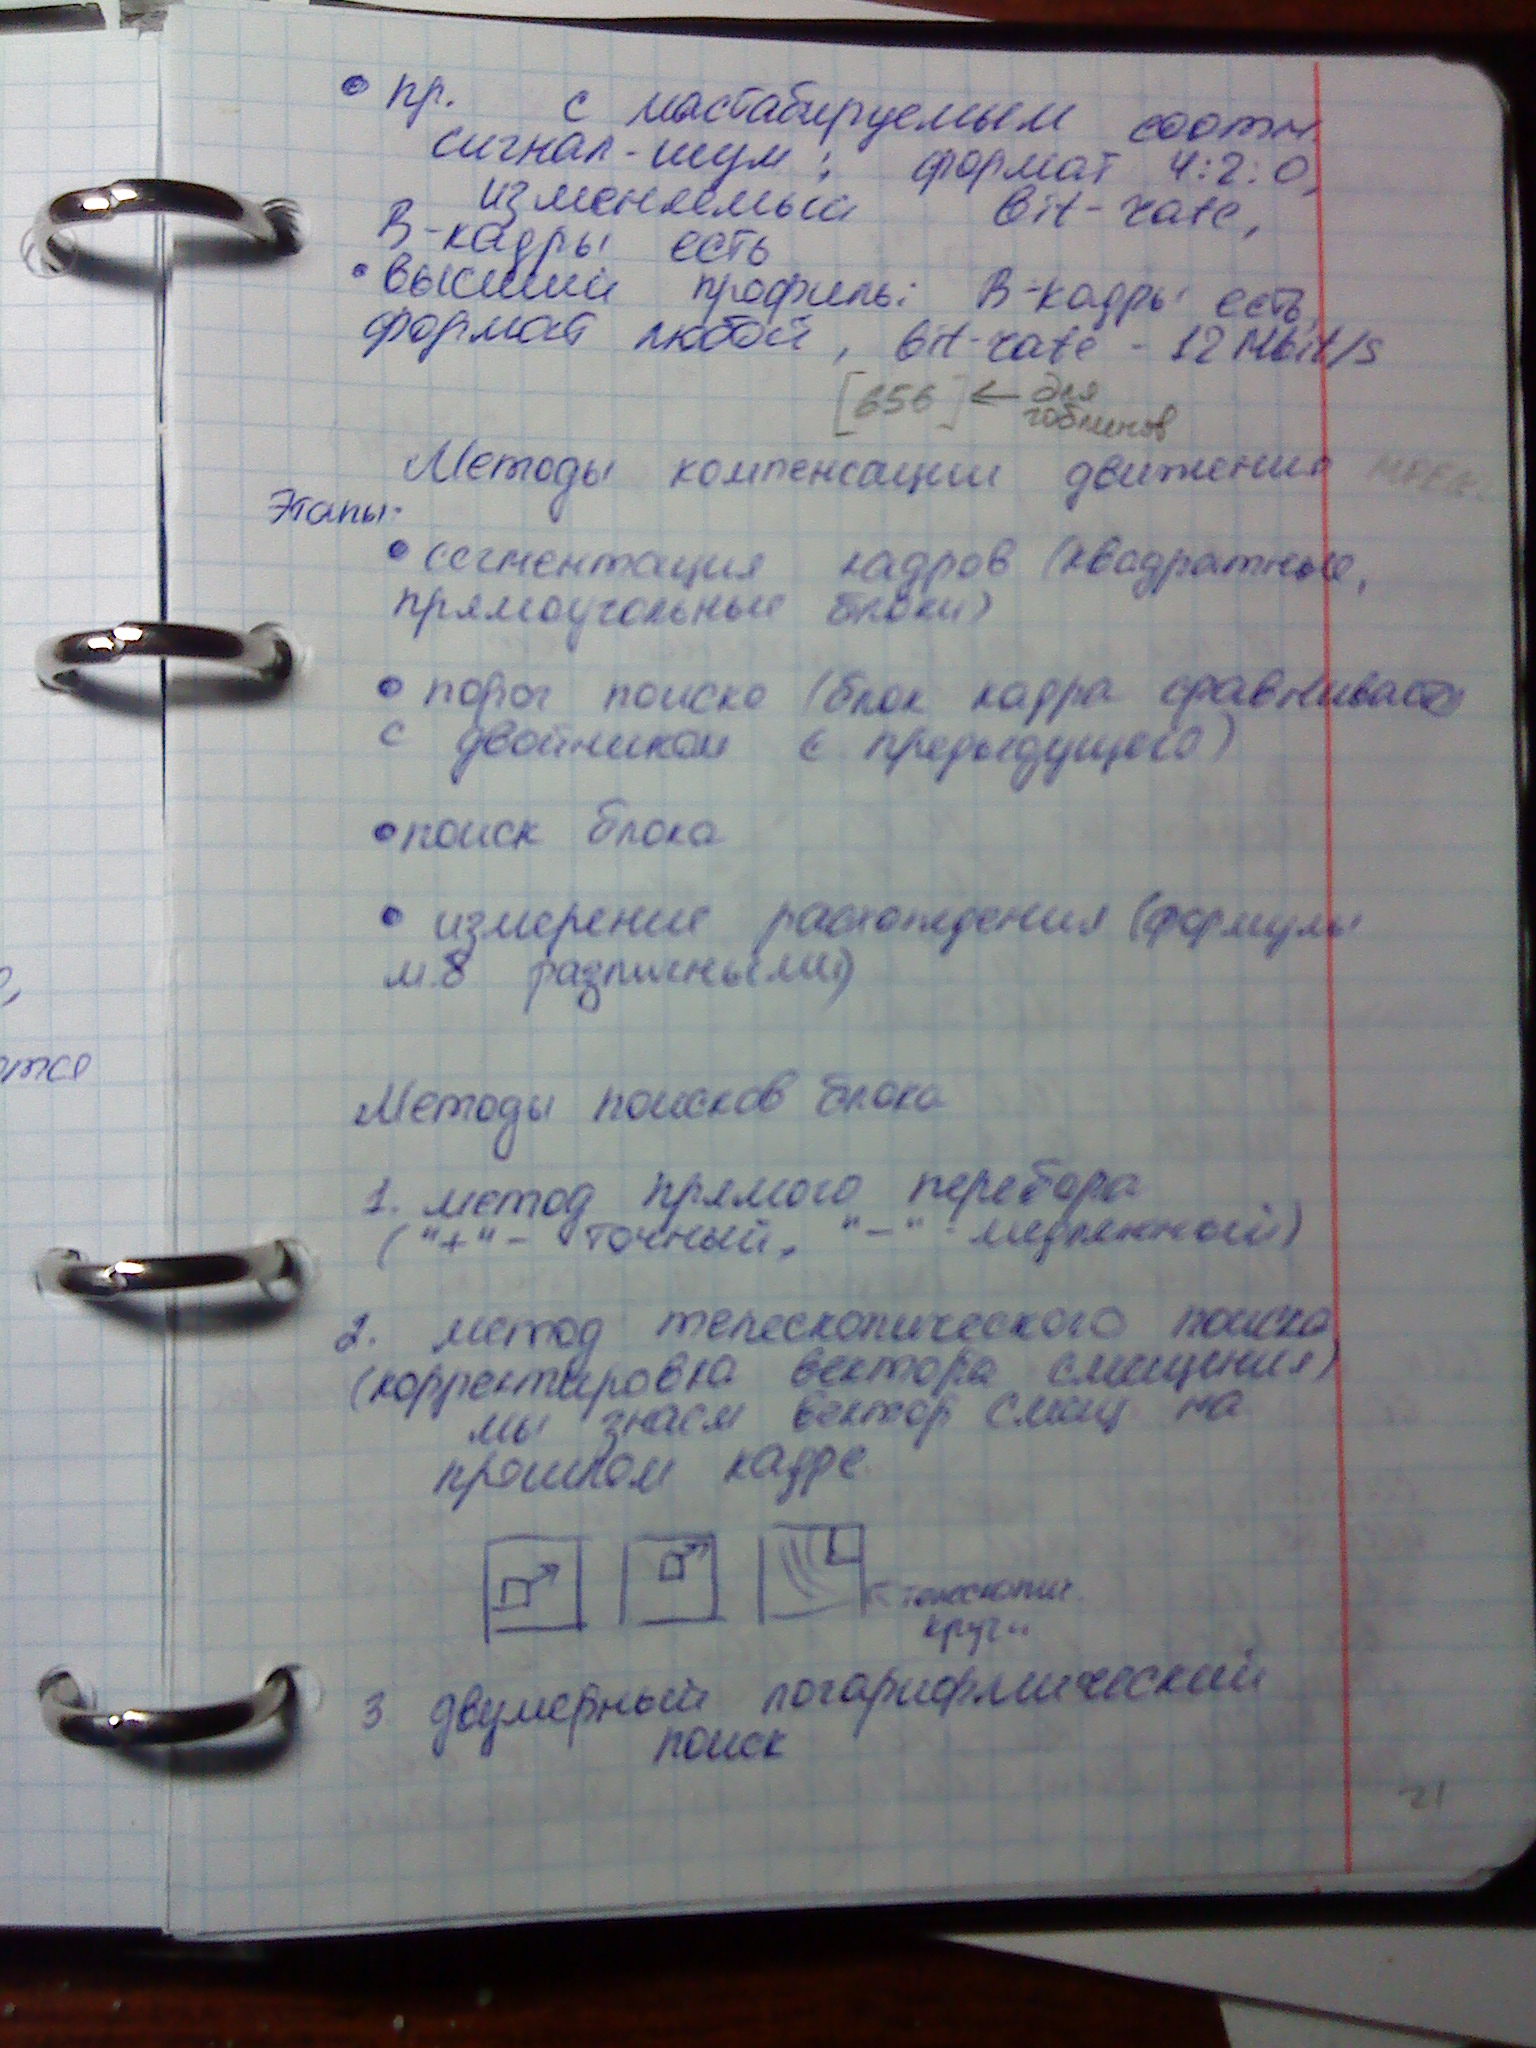 • пр. с мастабируемым соотн.
сигнал-шум; формат 4:2:0,
изменяемый bit-rate,
В-кадры есть
• высший профиль: В-кадры есть,
формат любой, bit-rate - 12 Mbit/s
[656] ← для
гоблинов
Методы компенсации движения
Этапы:
• сегментация кадров (квадратные,
прямоугольные блоки)
• порог поиска (блок кадра сравнивается
с двойником с предыдущего)
• поиск блока
• измерение расхождения (формулы
м.б различными)
Методы поисков блока
1. метод прямого перебора
("+" - точный, "-" - медленной)
2. метод телескопического поиска
(корректировка вектора смещения)
мы знаем вектор смещ на
прошлом кадре
← телескопич.
круги
3 двумерный логарифмический
поиск
21
отся